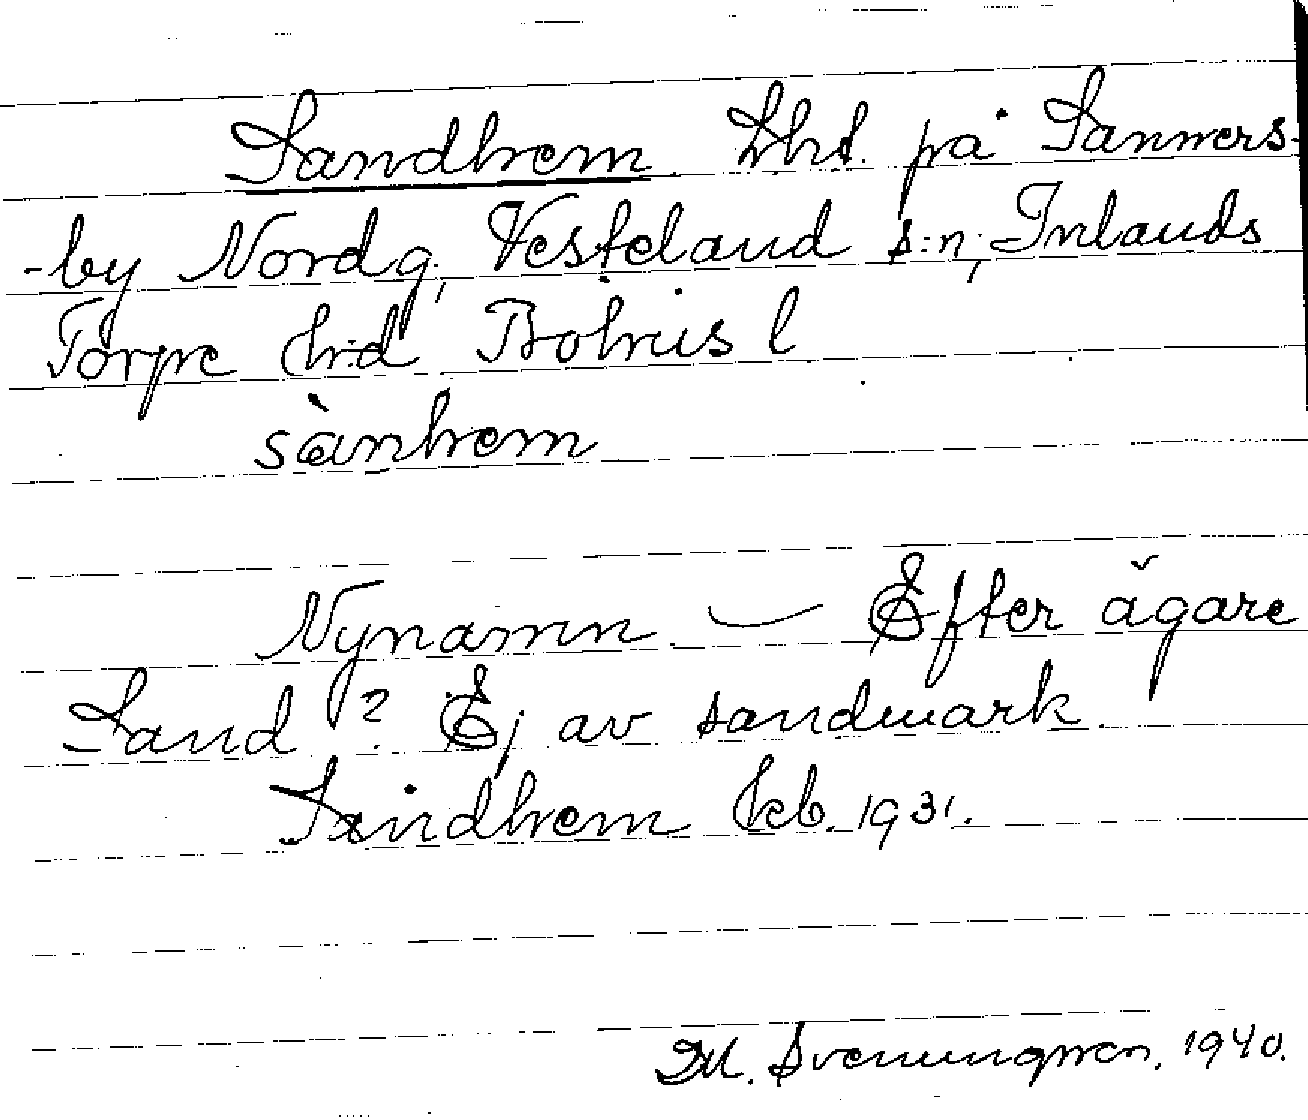 Sandhem Lht. på Sanners-
-by Nordg, Vesteland s:n, Inlands
Torpe h:d Bohus l
sànhem
Nynamn – Efter ägare
Sand? Ej av sandmark.
Sandhem Kb. 1931.
M. Svenungsson, 1940.